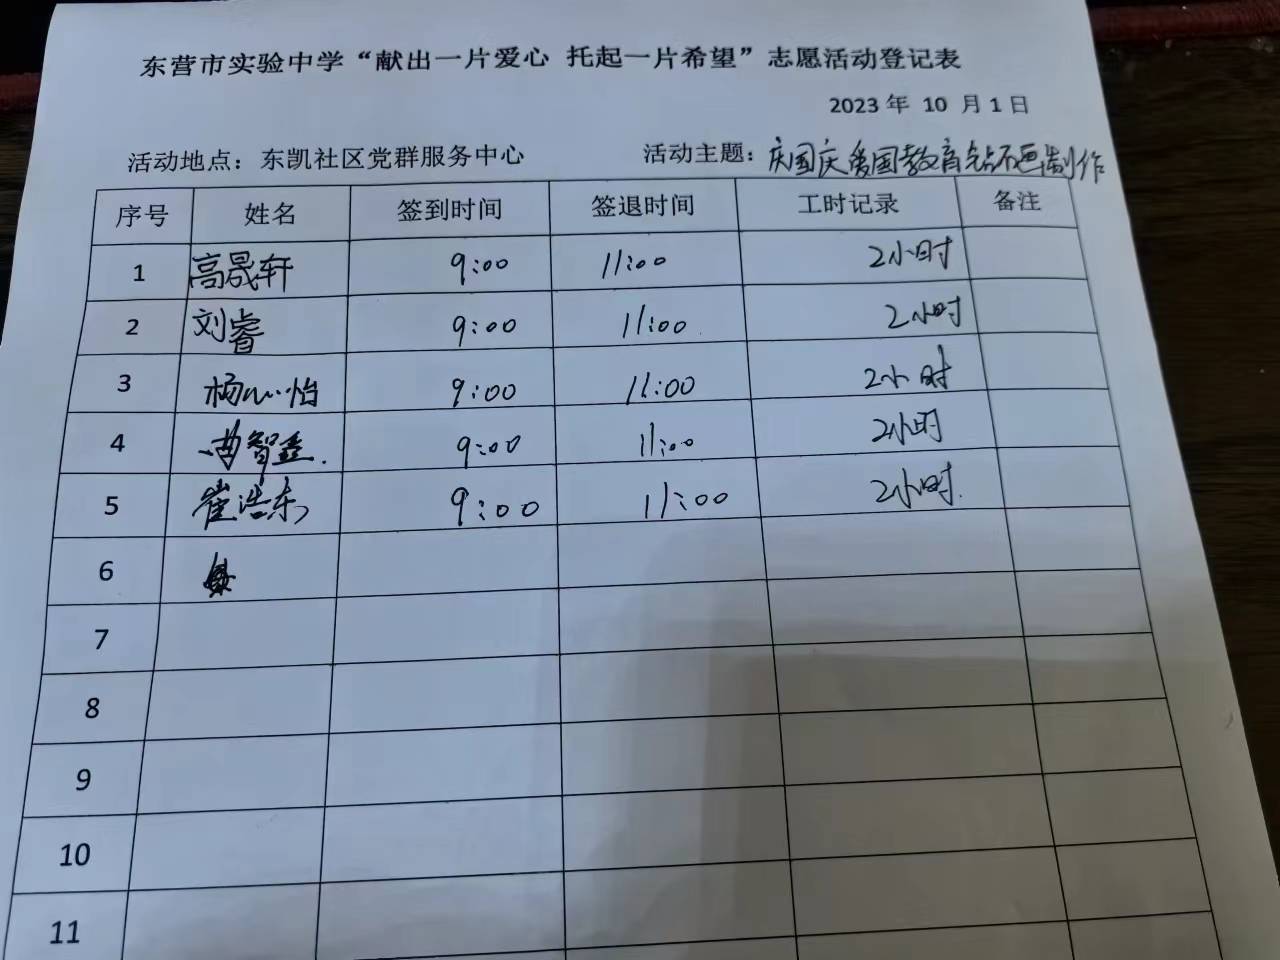 东营市实验中学“献出一片爱心 托起一片希望”志愿活动登记表
2023 年 10 月 1 日
活动地点：东凯社区党群服务中心 活动主题：庆国庆爱国教育钻石画制作
序号 姓名 签到时间 签退时间 工时记录 备注
1 高晟轩 9:00 11:00 2小时
2 刘睿 9:00 11:00 2小时
3 杨心怡 9:00 11:00 2小时
4 曹智鑫. 9:00 11:00 2小时
5 崔浩东 9:00 11:00 2小时.
6
7
8
9
10
11